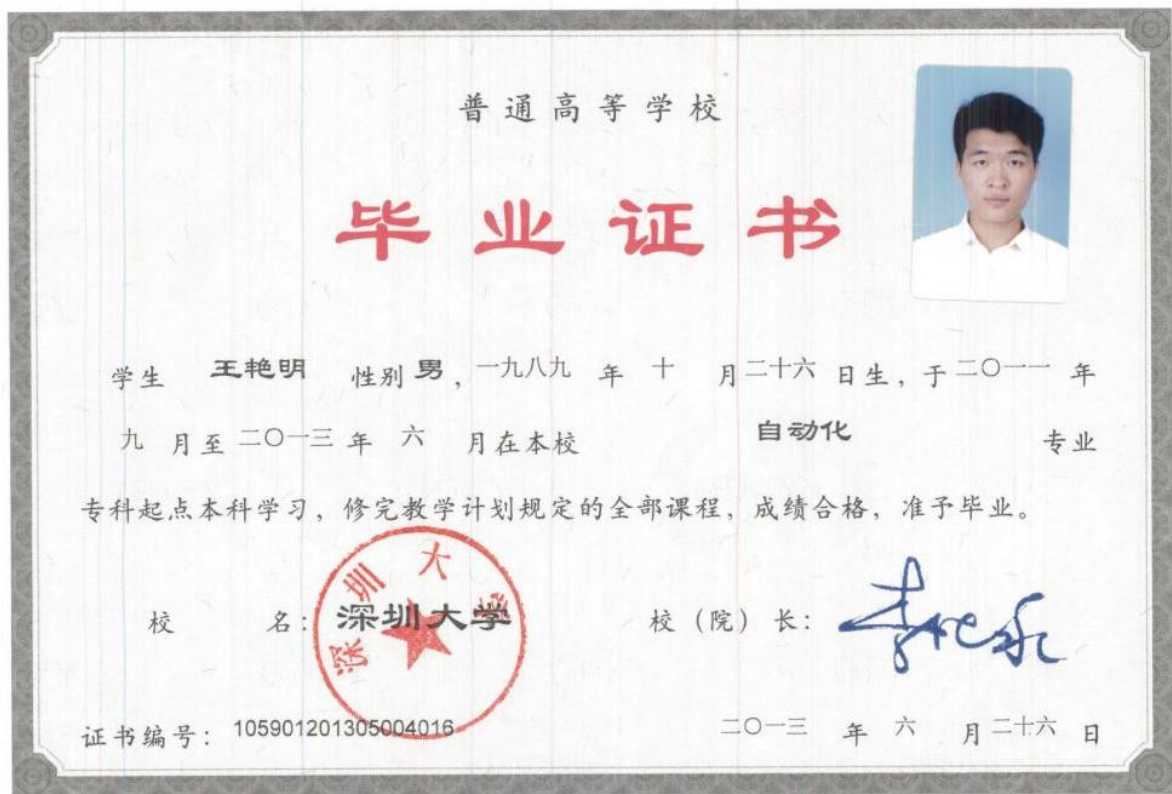 普通高等学校
毕业证书
学生 王艳明 性别 男，一九八九 年 十 月 二十六 日生，于 二〇一一 年
九 月至 二〇一三 年 六 月在本校 自动化 专业
专科起点本科学习，修完教学计划规定的全部课程，成绩合格，准予毕业。
校 名：深圳大学 校（院）长：
深圳大学
证书编号：105901201305004016 二〇一三 年 六 月 二十六 日